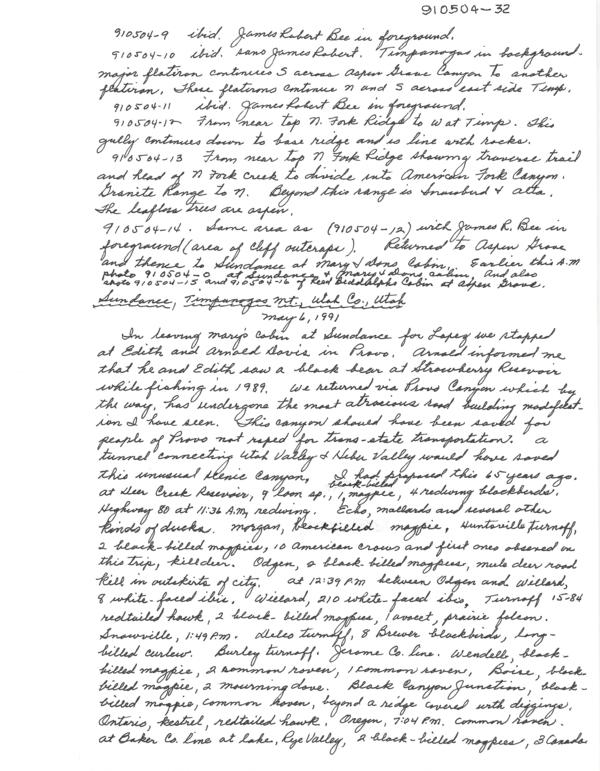 910504-32
910504-9 ibid. James Robert Bee in foreground.
910504-10 ibid. sans James Robert. Timpanogas in background-
major flatiron continues S across Aspen Grove Canyon to another
flatiron. These flatirons continue N and S across east side Timp.
910504-11 ibid. James Robert Bee in foreground.
910504-12 From near top N. Fork Ridge to W at Timp. This
gully continues down to base ridge and is line with rocks.
910504-13 From near top N Fork Ridge showing traverse trail
and head of N Fork creek to divide into American Fork Canyon.
Granite Range to N. Beyond this range is Snowbird & alta.
The leafless trees are aspen.
910504-14. Same area as (910504-12) with James R. Bee in
foreground (area of cliff outcrops). Returned to Aspen Grove
and thence to Sundance at Mary & Dons Cabin. Earlier this A.M
photo 910504-0 at Sundance & Mary & Dons cabin, And also
photo 910504-15 and 910504-16 of Reed Biddolphs Cabin at Aspen Grove.
Sundance, Timpanogas Mt., Utah Co., Utah
May 6, 1991
In leaving mary's cabin at Sundance for Lopez we stopped
at Edith and Arnold Davis in Provo. Arnold informed me
that he and Edith saw a black bear at Strawberry Resevoir
while fishing in 1989. We returned via Provo Canyon which by
the way, has undergone the most atrocious road building modificat-
ion I have seen. This canyon should have been saved for
people of Provo not raped for trans-state transportation. A
tunnel connecting Utah Valley & Heber Valley would have saved
this unusual scenic Canyon, I had proposed this 65 years ago.
at Deer Creek Resevoir, 9 loon sp., 1 black-billed magpie, 4 redwing blackbirds.
Highway 80 at 11:36 A.M, redwing. Echo, mallards and several other
kinds of ducks. morgan, blackbilled magpie, Huntsville turnoff,
2 black-billed magpies, 10 American crows and first ones observed on
this trip, killdeer. Odgen, 2 black-billed magpies, mule deer road
kill in outskirts of city. at 12:39 PM between Odgen and Willard,
8 white-faced ibis. Willard, 210 white-faced ibis, Turnoff 15-84
redtailed hawk, 2 black-billed magpies, 1 avocet, prairie falcon.
Snowville, 1:49 P.M. Delco turnoff, 8 Brewer blackbirds, long-
billed curlew. Burley turnoff. Jerome Co. line. Wendell, black-
billed magpie, 2 common raven, 1 common raven, Boise, black-
billed magpie, 2 mourning dove. Black Canyon Junction, black-
billed magpie, common raven, beyond a ridge covered with diggings.
Ontario, kestrel, redtailed hawk. Oregon, 7:04 P.M. common raven.
at Baker Co. line at lake, Rye Valley, 2 black-billed magpies, 3 Canada